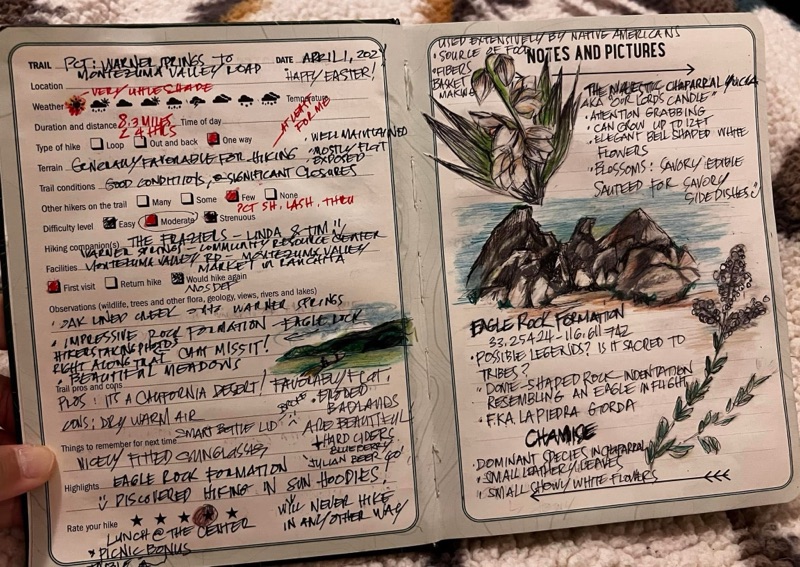 TRAIL PCT: WARNER SPRINGS TO
MONTEZUMA VALLEY ROAD
DATE APRIL 1, 202
HAPPY EASTER!
Location VERY LITTLE SHADE
Weather
Temperature
AT LEAST
FOR ME
Duration and distance 8.3 MILES
~ 4 HRS
Time of day
Type of hike Loop Out and back One way
• WELL MAINTAINED
• MOSTLY FLAT
• EXPOSED
Terrain GENERALLY FAVORABLE FOR HIKING
Trail conditions GOOD CONDITIONS, SIGNIFICANT CLOSURES
Other hikers on the trail Many Some Few None
PCT SH, LASH, THRU
Difficulty level Easy Moderate Strenuous
Hiking companion(s) THE FRAZIERS - LINDA & TIM
WARNER SPRINGS - COMMUNITY RESOURCE CENTER
Facilities MONTEZUMA VALLEY RD - MONTEZUMA VALLEY
MARKET IN RANCHITA
First visit Return hike Would hike again
MOS DEF
Observations (wildlife, trees and other flora, geology, views, rivers and lakes)
• OAK LINED CREEK WARNER SPRINGS
• IMPRESSIVE ROCK FORMATION - EAGLE ROCK
HIKERS TAKING PHOTOS
RIGHT ALONG TRAIL CAN'T MISS IT!
BEAUTIFUL MEADOWS
Trail pros and cons
PROS: IT'S A CALIFORNIA DESERT! FAVORABLY FLAT!
CONS: DRY WARM AIR
SMART BOTTLE LID
BADLANDS
ARE BEAUTIFUL
Things to remember for next time
NICELY FITTED SUNGLASSES
HARD CIDERS
BLUEBERRY
"JULIAN BEER CO"
Highlights EAGLE ROCK FORMATION
DISCOVERED HIKING IN SUN HOODIES!
WILL NEVER HIKE
IN ANY OTHER WAY
Rate your hike
LUNCH @ THE CENTER
* PICNIC BONUS
USED EXTENSIVELY BY NATIVE AMERICANS
• SOURCE OF FOOD
• FIBERS
BASKET
MAKING
NOTES AND PICTURES
THE MAJESTIC CHAPARRAL YUCCA
AKA "OUR LORDS CANDLE"
• ATTENTION GRABBING
• CAN GROW UP TO 12FT
• ELEGANT BELL SHAPED WHITE
FLOWERS
• BLOSSOMS: SAVORY/EDIBLE
SAUTEED FOR SAVORY
SIDE DISHES
EAGLE ROCK FORMATION
33.25424 -116.611742
• POSSIBLE LEGENDS? IS IT SACRED TO
TRIBES?
• DOME-SHAPED ROCK INDENTATION
RESEMBLING AN EAGLE IN FLIGHT
• F.K.A. LA PIEDRA GORDA
CHAMISE
• DOMINANT SPECIES IN CHAPARRAL
• SMALL LEATHERY LEAVES
• SMALL SHOWY WHITE FLOWERS